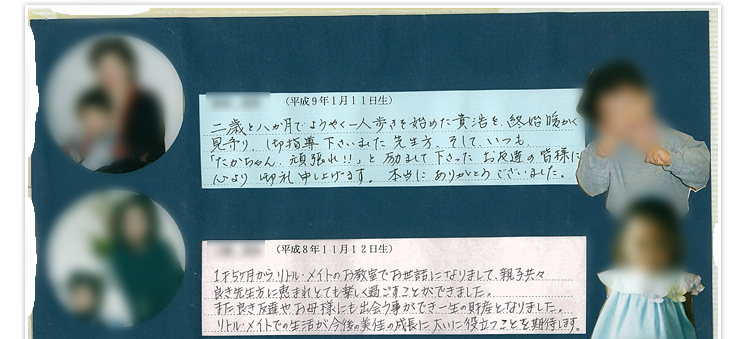 (平成9年1月11日生)
二歳と八か月でようやく一人歩きを始めた貴浩を、終始暖かく
見守り、御指導下さいました先生方、そして、いつも
「たかちゃん、頑張れ!!」と励まして下さった お友達の皆様に
心より 御礼申し上げます。本当に ありがとうございました。
(平成8年11月12日生)
1才5ヶ月から、リトル・メイトのお教室でお世話になりまして、親子共々
良き先生方に恵まれとても楽しく過ごすことができました。
また良き友達や、お母様にも出会う事ができ一生の財産となりました。
リトル・メイトでの生活が今後の美佳の成長に大いに役立つことを期待します。